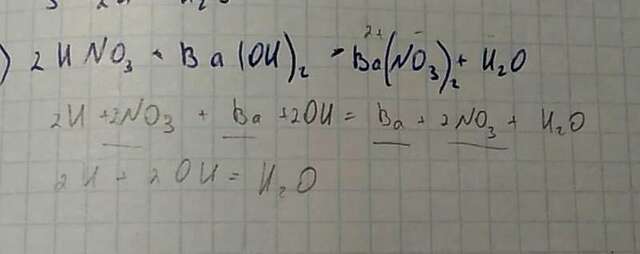 ) 2HNO₃ + Ba(OH)₂ = Ba²⁺(NO₃)⁻₂ + H₂O
2H + 2NO₃ + Ba + 2OH = Ba + 2NO₃ + H₂O
2H + 2OH = H₂O